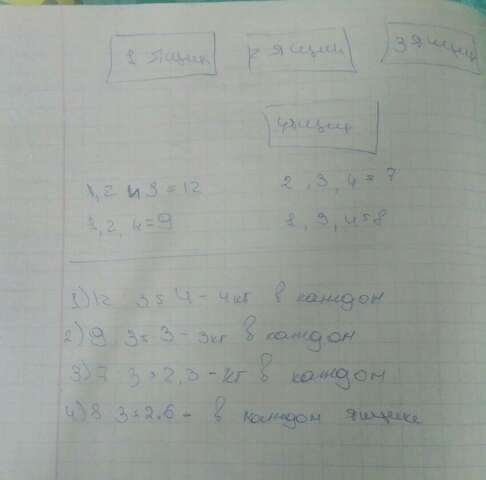 1 ящик 2 ящик 3 ящик
4 ящик
1, 2 и 3 = 12 2, 3, 4 = 7
1, 2, 4 = 9 1, 3, 4 = 8
1) 12 3 = 4 - 4кг в каждом
2) 9 3 = 3 - 3кг в каждом
3) 7 3 = 2,3 - кг в каждом
4) 8 3 = 2.6 - в каждом ящике